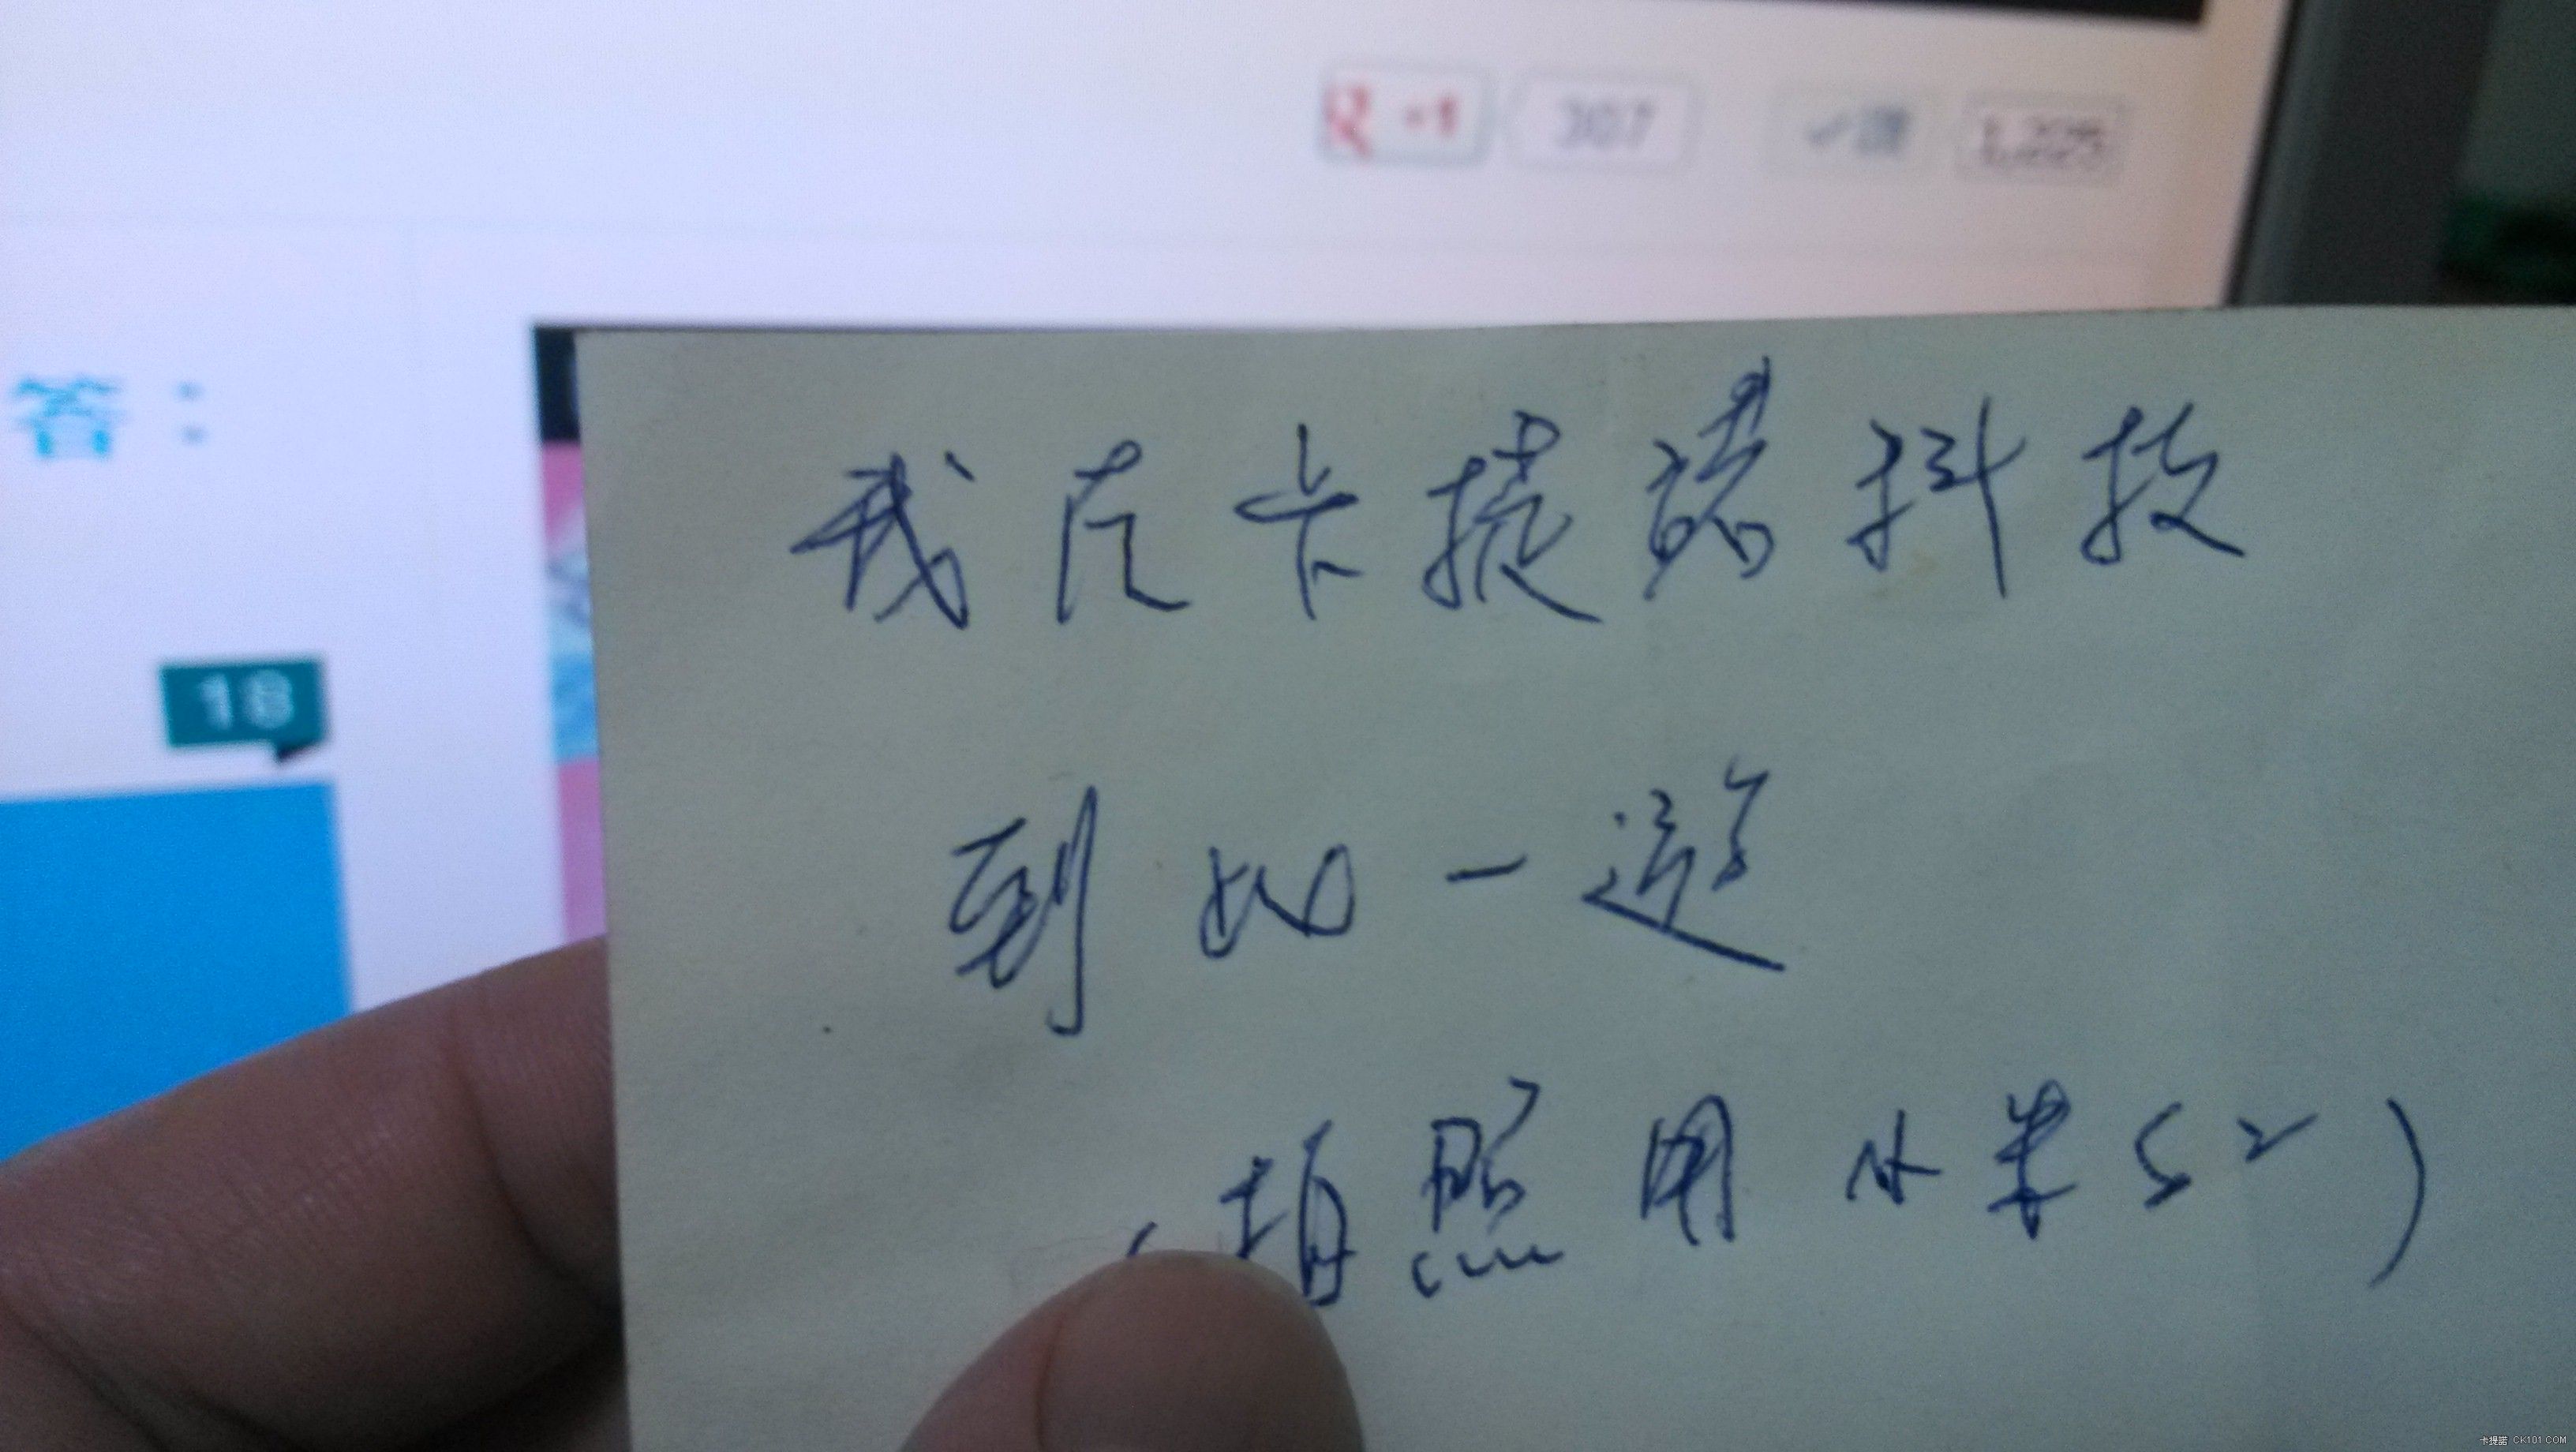 +1 307 ✓讚 1,225
答：
18
我在卡提諾科技
到此一遊
(拍照用小米S2)
卡提諾 CK101.COM